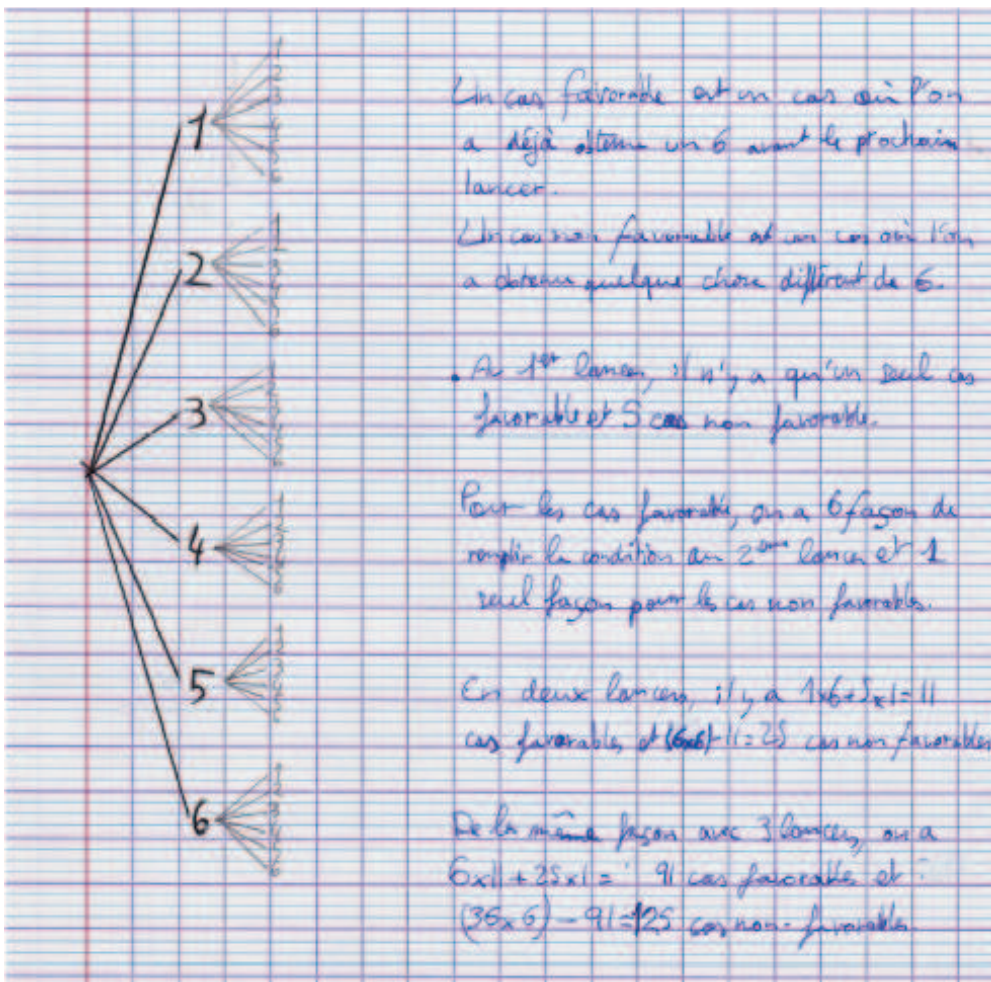 1
2
3
4
5
6
Un cas favorable est un cas où l'on
a déjà obtenu un 6 avant le prochain
lancer.
Un cas non favorable est un cas où l'on
a obtenu quelque chose différent de 6.
. Au 1er lancer, il n'y a qu'un seul cas
favorable et 5 cas non favorable.
Pour les cas favorable, on a 6 façon de
remplir la condition au 2ème lancer et 1
seul façon pour les cas non favorables.
En deux lancers, il y a 1x6+5x1=11
cas favorables et (6x6)-11=25 cas non favorables
De la même façon avec 3 lancers, on a
6x11+25x1= 91 cas favorables et :
(36x6)-91=125 cas non-favorables.